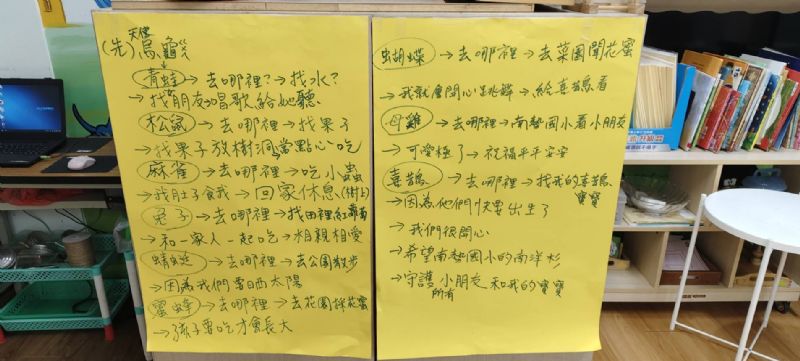 天使
(先)烏龜ㄍㄨㄟ
青蛙→去哪裡?→找水?
→找朋友唱歌給她聽
松鼠→去哪裡→找果子
→找果子放樹洞當點心吃
麻雀→去哪裡→吃小蟲
→我肚子餓我→回家休息(樹上)
兔子→去哪裡→找田裡紅蘿蔔
→和一家人一起吃→相親相愛
蜻蜓→去哪裡→去公園散步
→因為我們要曬太陽
蜜蜂→去哪裡→去花園採花蜜
→孩子要吃才會長大
蝴蝶→去哪裡→去菜園聞花蜜
→我就會開心跳舞→給喜鵲看
母雞→去哪裡→南勢國小看小朋友
→可愛極了→祝福平平安安
喜鵲→去哪裡→找我的喜鵲
寶寶
→因為他們快要出生了
→我們很開心
→希望南勢國小的南洋杉
→守護所有小朋友和我的寶寶